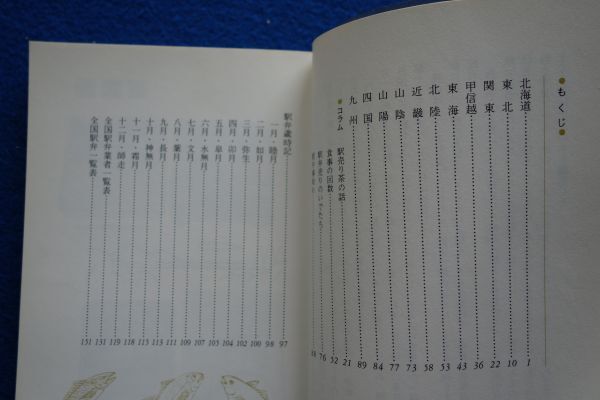 ●もくじ●
北海道 1
東北 10
関東 22
甲信越 36
東海 43
北陸 53
近畿 58
山陰 73
山陽 77
四国 84
九州 89
●コラム
駅売り茶の話 21
食事の回数 52
駅弁売りのいでたち 76
駅弁歳時記 97
一月・睦月 98
二月・如月 100
三月・弥生 102
四月・卯月 104
五月・皐月 105
六月・水無月 107
七月・文月 109
八月・葉月 111
九月・長月 113
十月・神無月 115
十一月・霜月 118
十二月・師走 119
全国駅弁業者一覧表 131
全国駅弁一覧表 151